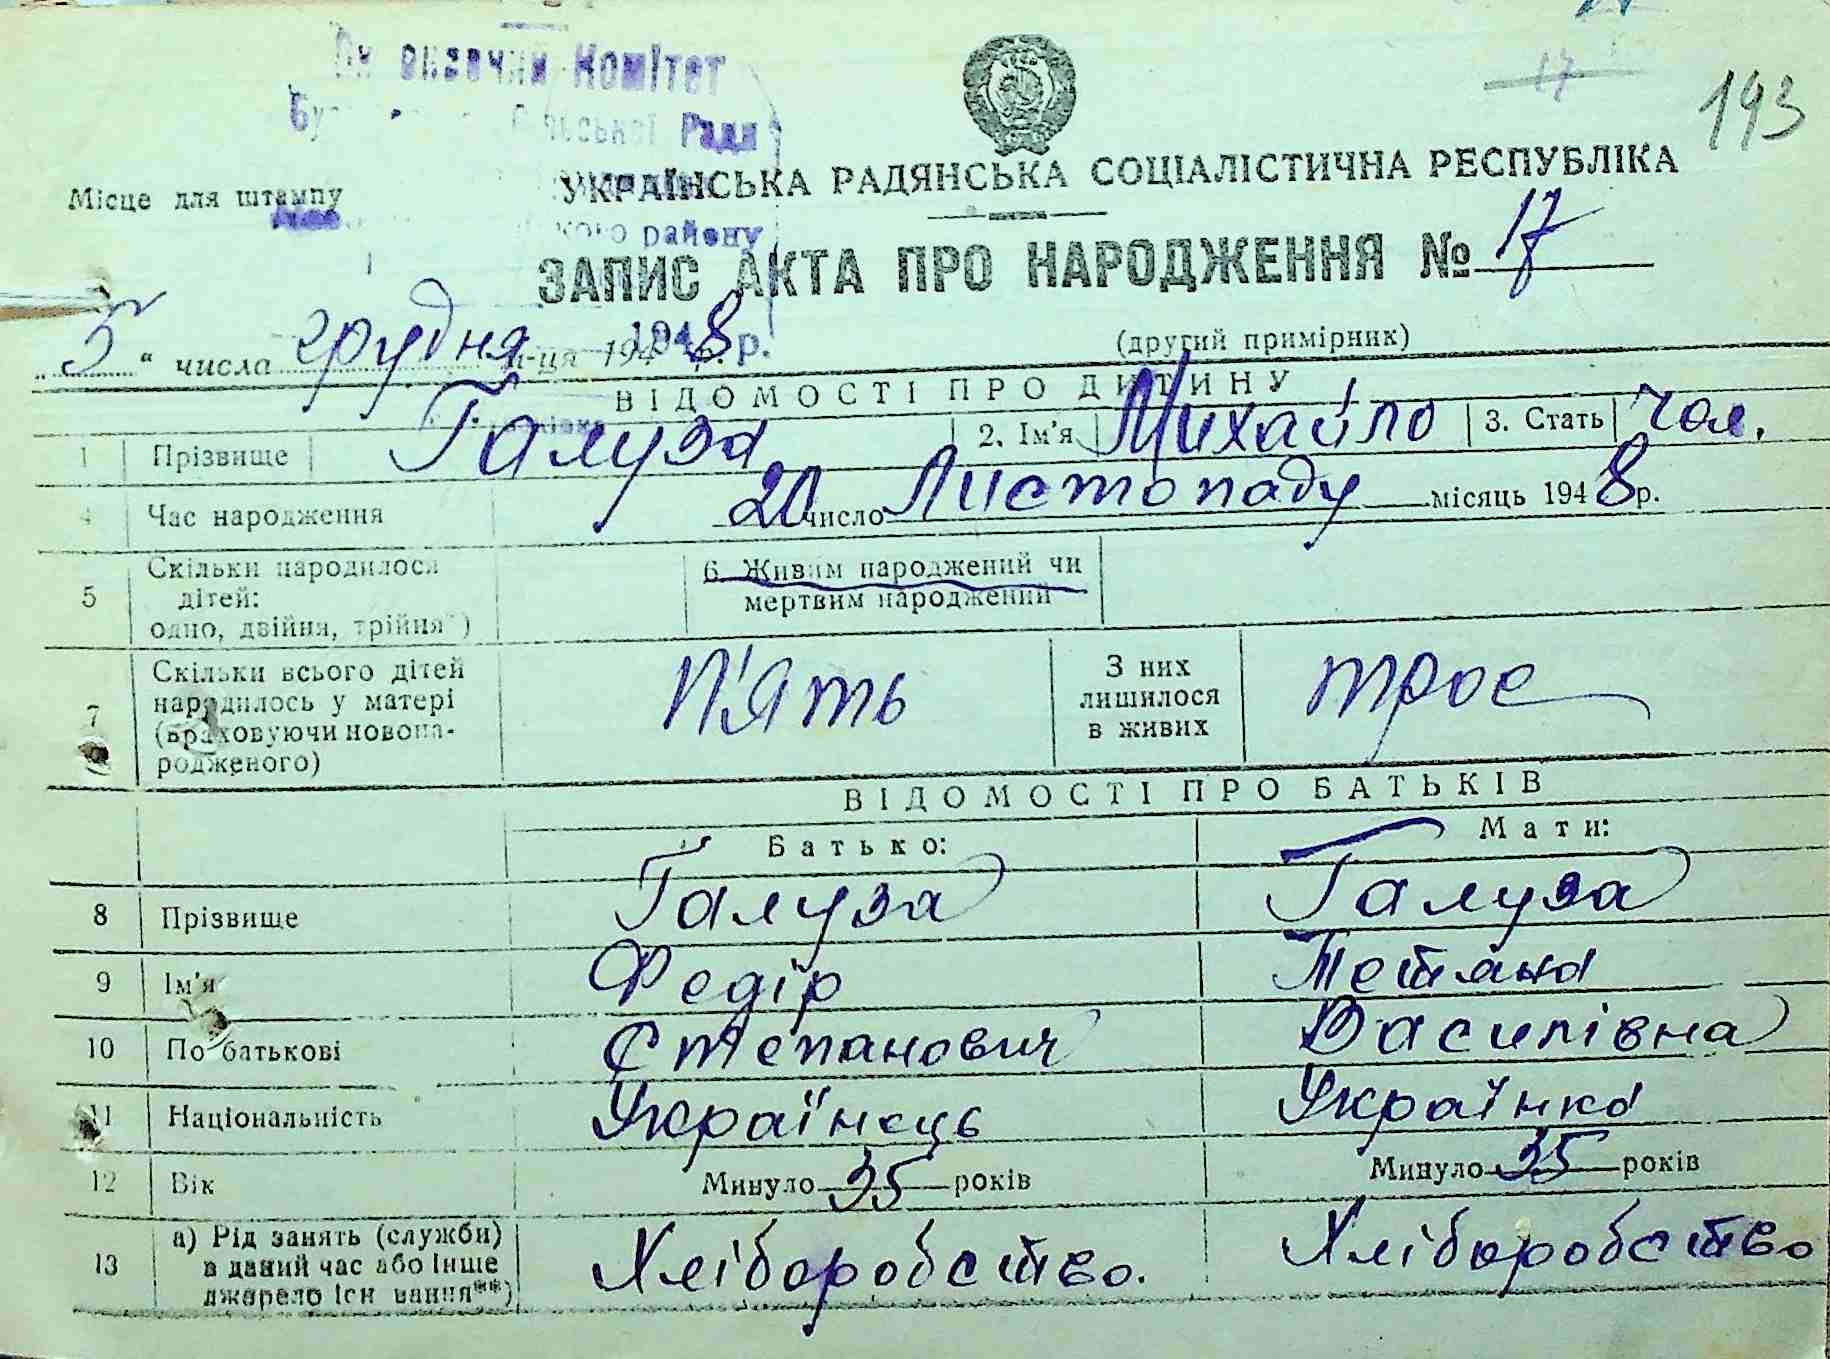 Комітет
Ради
17
193
УКРАЇНСЬКА РАДЯНСЬКА СОЦІАЛІСТИЧНА РЕСПУБЛІКА
Місце для штампу
району
ЗАПИС АКТА ПРО НАРОДЖЕННЯ № 17
(другий примірник)
„5“ числа грудня м-ця 1948 р.
ВІДОМОСТІ ПРО ДИТИНУ
1 Прізвище Галуза 2. Ім'я Михайло 3. Стать чол.
4 Час народження 20 число Листопаду місяць 1948 р.
5 Скільки народилося дітей: одно, двійня, трійня*) 6. Живим народжений чи мертвим народжений
7 Скільки всього дітей народилось у матері (враховуючи новонародженого) П'ять З них лишилося в живих троє
ВІДОМОСТІ ПРО БАТЬКІВ
Батько: Мати:
8 Прізвище Галуза Галуза
9 Ім'я Федір Тетяна
10 По батькові Степанович Василівна
11 Національність Українець Українка
12 Вік Минуло 35 років Минуло 35 років
13 а) Рід занять (служби) в даний час або інше джерело існування**) Хліборобство. Хліборобство